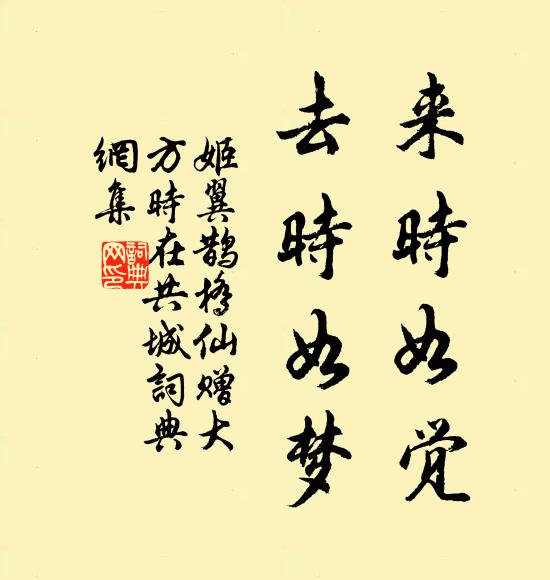 来時如觉
去時如梦
姬翼鹊橋仙赠大
方時在共城詞典
網集
詞典
网印